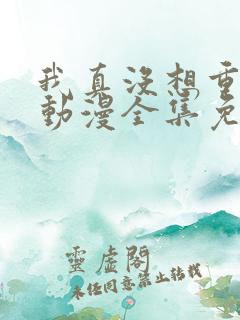 我真没想重
動漫全集免
靈虛閣
未经同意禁止转载